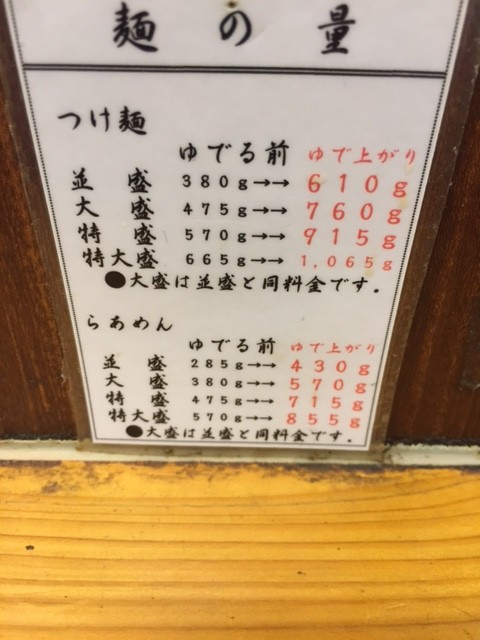 麺の量
つけ麺
ゆでる前 ゆで上がり
並盛 380g→→ 610g
大盛 475g→→ 760g
特盛 570g→→ 915g
特大盛 665g→→ 1,065g
●大盛は並盛と同料金です.
らあめん
ゆでる前 ゆで上がり
並盛 285g→→ 430g
大盛 380g→→ 570g
特盛 475g→→ 715g
特大盛 570g→→ 855g
●大盛は並盛と同料金です.